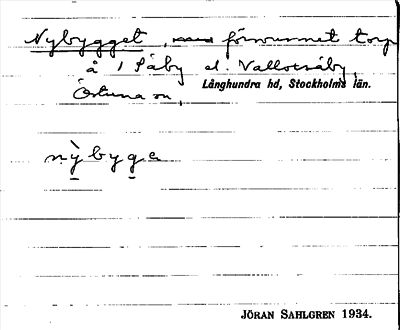 Nybygget, försvunnet torp
å 1 Säby el. Vallotsåby,
Östuna sn, Långhundra hd, Stockholms län.
nỳ̱byg̱e
JÖRAN SAHLGREN 1934.